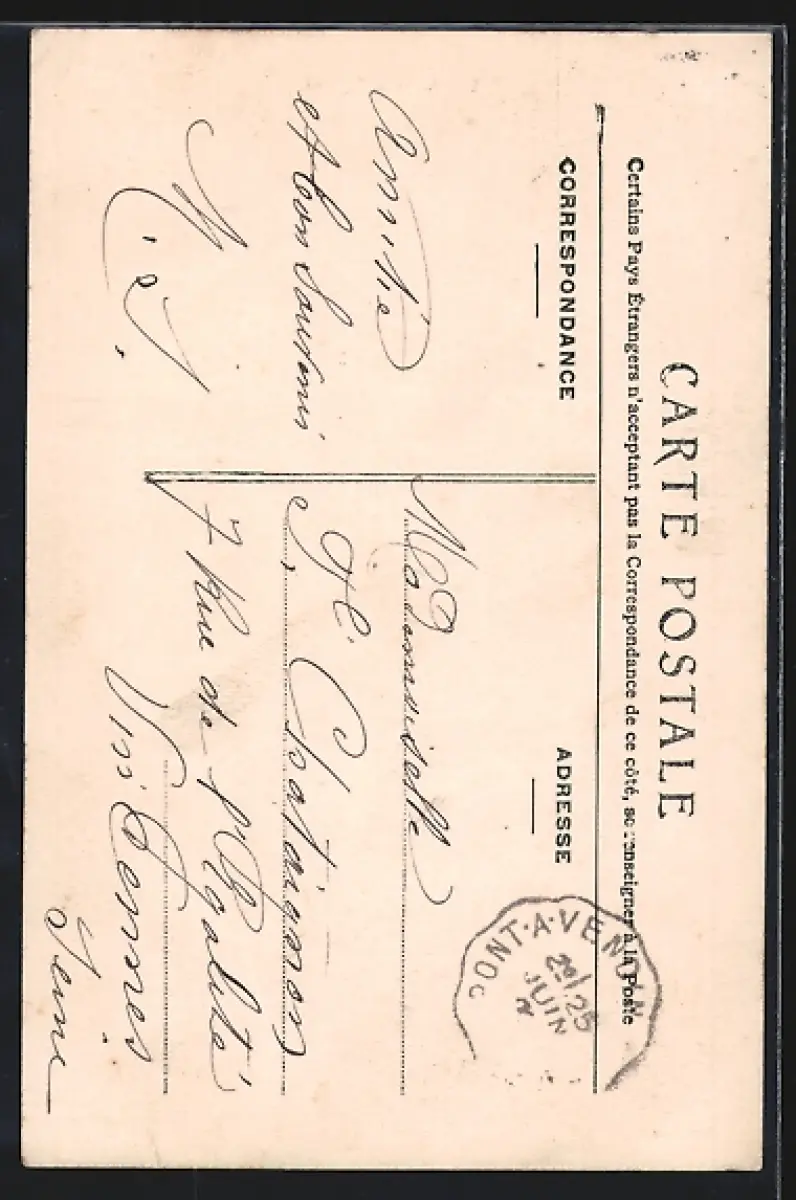 CARTE POSTALE
Certains Pays Étrangers n'acceptant pas la Correspondance de ce côté, se renseigner à la Poste
CORRESPONDANCE
ADRESSE
Amitié
et bon Souvenir
M. S.
Mademoiselle
Chataignon
7 Rue de l'Egalité
Vincennes
Seine
PONT-A-VENDIN
25
JUIN